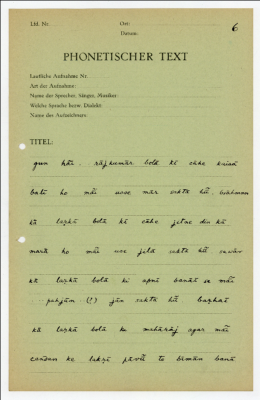 Lfd. Nr.
Ort:
6
Datum:
PHONETISCHER TEXT
Lautliche Aufnahme Nr.
Art der Aufnahme:
Name der Sprecher, Sänger, Musiker:
Welche Sprache bezw. Dialekt:
Name des Aufzeichners:
TITEL:
gun hãi. rājkumār bolā ki cāhe kaisā
balī ho mãi usse mār saktā hũ. brāhman
kā laṛkā bolā ki cāhe jitne din kā
marā ho mãi use jilā saktā hũ
kā laṛkā bolā ki apnī se mãi
(?) jān saktā hũ baṛhaī
kā laṛkā bolā ke mahārāj agar mãi
candan ke lakṛī pāvẽ to bimān banā